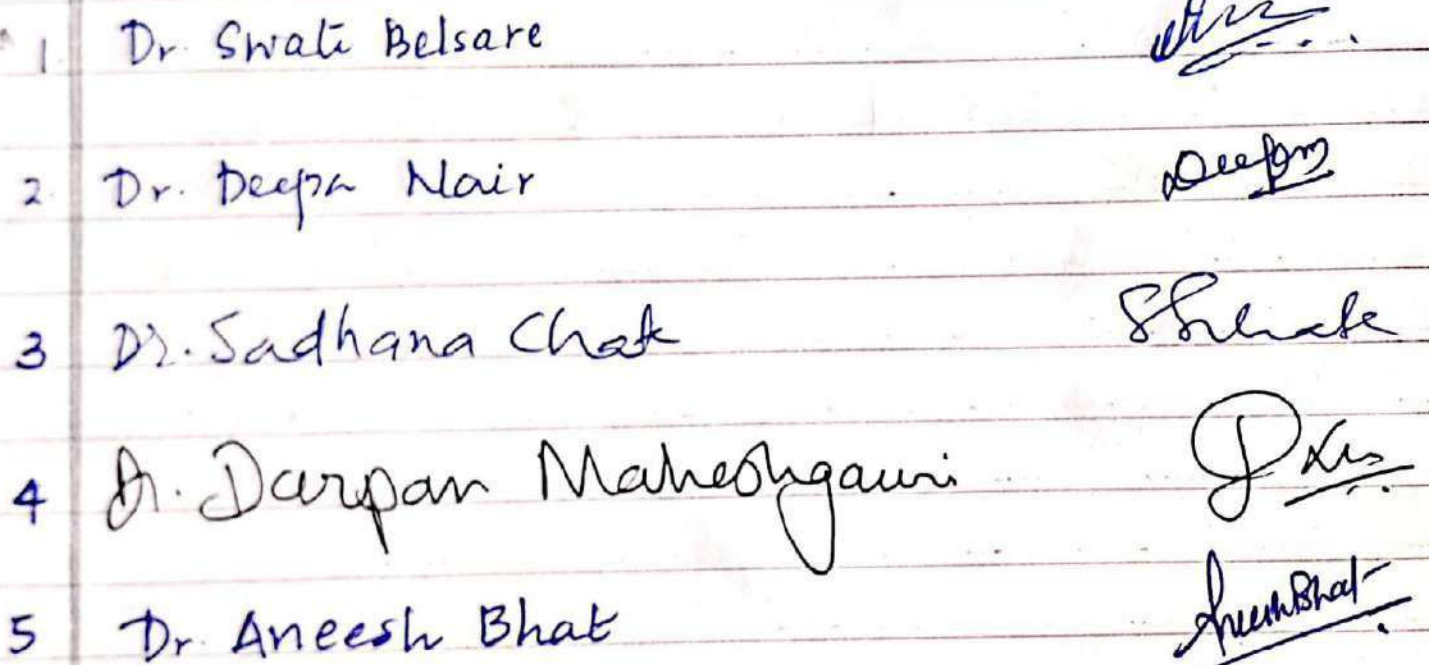 1 Dr. Swati Belsare
2. Dr. Deepa Nair Deepa
3 Dr. Sadhana Chak
4 Dr. Darpan Maheshgauri
5 Dr. Aneesh Bhat AneeshBhat